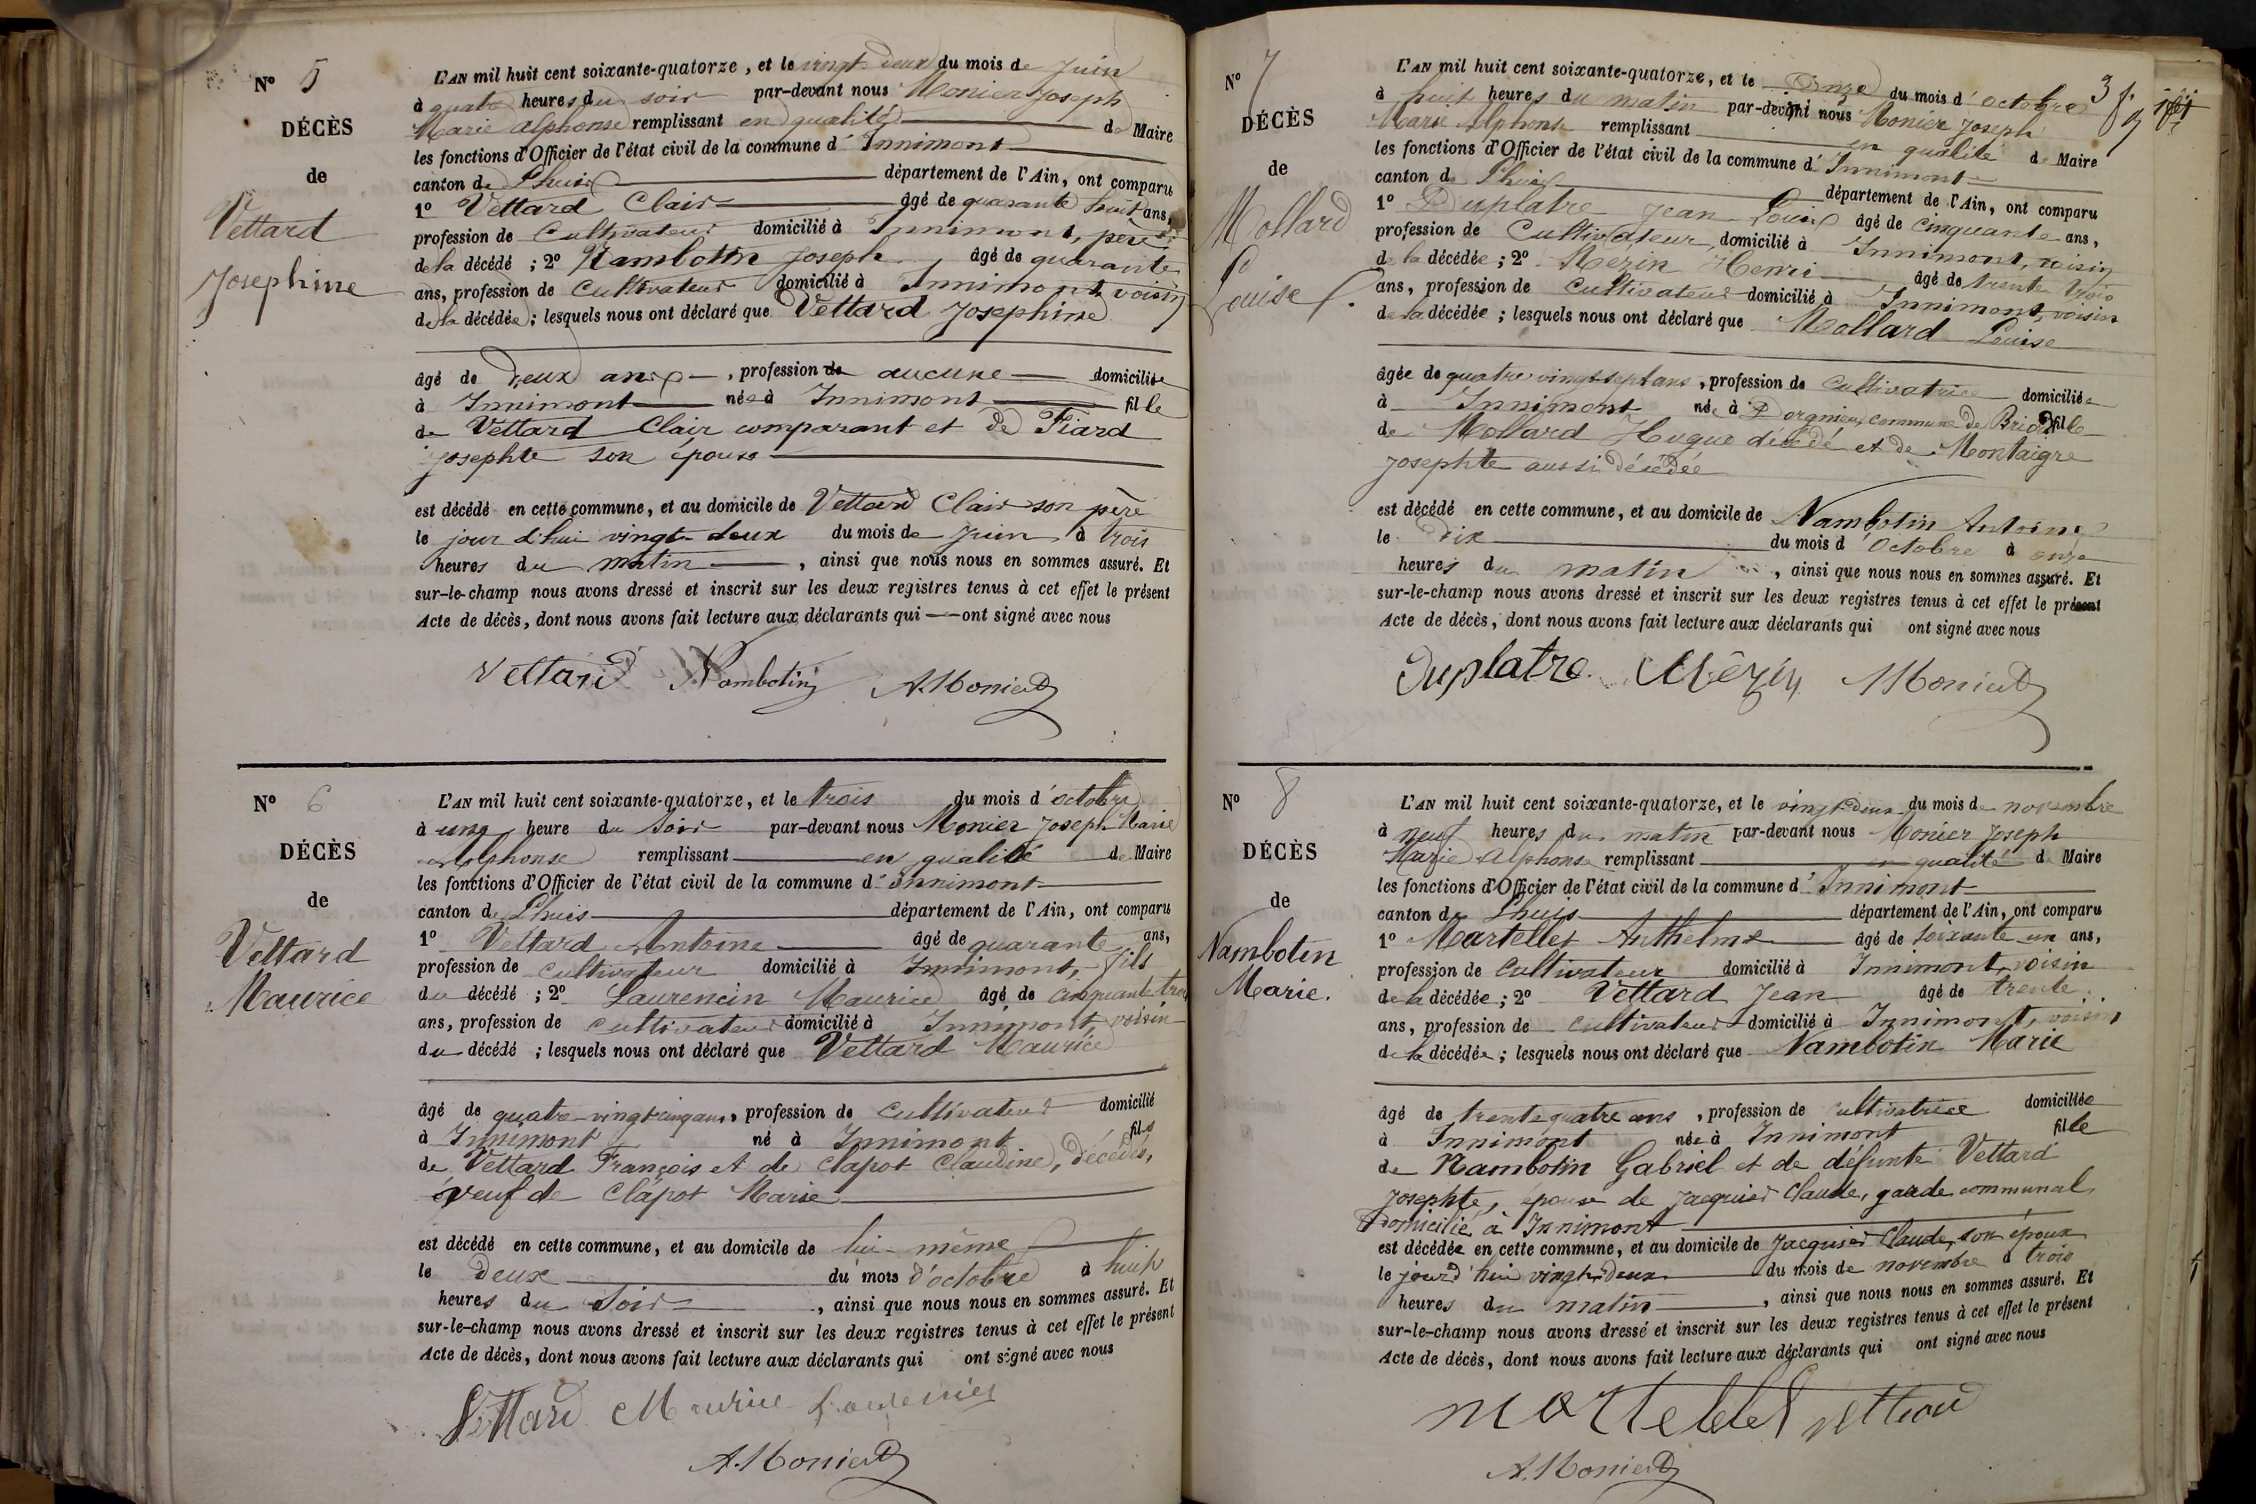 Nº 5
DÉCÈS
de
Vettard
Josephine
L'AN mil huit cent soixante-quatorze, et le vingt deux du mois de Juin
à quatre heures du soir par-devant nous Monier Joseph
Marie Alphonse remplissant en qualité de Maire
les fonctions d'Officier de l'état civil de la commune d' Innimont
canton de Lhuis département de l'Ain, ont comparu
1º Vettard Clair âgé de quarante huit ans,
profession de Cultivateur domicilié à Innimont, père
de la décédé ; 2º Nambotin Joseph âgé de quarante
ans, profession de Cultivateur domicilié à Innimont, voisin
de la décédée ; lesquels nous ont déclaré que Vettard Josephine
âgé de deux ans, profession de aucune domiciliée
à Innimont née à Innimont fille
de Vettard Clair comparant et de Fiard
Josephte son épouse
est décédé en cette commune, et au domicile de Vettard Clair son père
le jour d'hui vingt-deux du mois de Juin à trois
heures du matin, ainsi que nous nous en sommes assuré. Et
sur-le-champ nous avons dressé et inscrit sur les deux registres tenus à cet effet le présent
Acte de décès, dont nous avons fait lecture aux déclarants qui ont signé avec nous
Vettard Nambotin A. Monier
Nº 6
DÉCÈS
de
Vettard
Maurice
L'AN mil huit cent soixante-quatorze, et le trois du mois d' octobre
à une heure du soir par-devant nous Monier Joseph Marie
Alphonse remplissant en qualité de Maire
les fonctions d'Officier de l'état civil de la commune d' Innimont
canton de Lhuis département de l'Ain, ont comparu
1º Vettard Antoine âgé de quarante ans,
profession de cultivateur domicilié à Innimont, fils
du décédé ; 2º Laurencin Maurice âgé de cinquante trois
ans, profession de cultivateur domicilié à Innimont, voisin
du décédé ; lesquels nous ont déclaré que Vettard Maurice
âgé de quatre-vingt-cinq ans, profession de Cultivateur domicilié
à Innimont né à Innimont fils
de Vettard François et de Clapot Claudine, décédés,
veuf de Clapot Marie
est décédé en cette commune, et au domicile de lui-même
le deux du mois d'octobre à huit
heures du soir, ainsi que nous nous en sommes assuré. Et
sur-le-champ nous avons dressé et inscrit sur les deux registres tenus à cet effet le présent
Acte de décès, dont nous avons fait lecture aux déclarants qui ont signé avec nous
Vettard Maurice Laurencin
A. Monier
Nº 7
DÉCÈS
de
Mollard
Louise
L'AN mil huit cent soixante-quatorze, et le Onze du mois d' octobre
à huit heures du matin par-devant nous Monier Joseph
Marie Alphonse remplissant en qualité de Maire
les fonctions d'Officier de l'état civil de la commune d' Innimont
canton de Lhuis département de l'Ain, ont comparu
1º Duplatre Jean Louis âgé de cinquante ans,
profession de Cultivateur domicilié à Innimont, voisin
de la décédée ; 2º Mezin Henri âgé de trente trois
ans, profession de cultivateur domicilié à Innimont, voisin
de la décédée ; lesquels nous ont déclaré que Mollard Louise
âgée de quatre vingt-sept ans, profession de Cultivatrice domiciliée
à Innimont née à Dorgnieu, commune de Briord fille
de Mollard Hugue décédé et de Montaigre
Josephte aussi décédée
est décédé en cette commune, et au domicile de Nambotin Antoine
le dix du mois d' octobre à onze
heures du matin, ainsi que nous nous en sommes assuré. Et
sur-le-champ nous avons dressé et inscrit sur les deux registres tenus à cet effet le présent
Acte de décès, dont nous avons fait lecture aux déclarants qui ont signé avec nous
Duplatre. Mêzin A Monier
Nº 8
DÉCÈS
de
Nambotin
Marie.
L'AN mil huit cent soixante-quatorze, et le vingt-deux du mois de novembre
à neuf heures du matin par-devant nous Monier Joseph
Marie Alphonse remplissant en qualité de Maire
les fonctions d'Officier de l'état civil de la commune d' Innimont
canton de Lhuis département de l'Ain, ont comparu
1º Martellet Anthelme âgé de soixante un ans,
profession de cultivateur domicilié à Innimont, voisin
de la décédée ; 2º Vettard Jean âgé de trente
ans, profession de cultivateur domicilié à Innimont, voisin
de la décédée ; lesquels nous ont déclaré que Nambotin Marie
âgé de trente quatre ans, profession de cultivatrice domiciliée
à Innimont née à Innimont fille
de Nambotin Gabriel et de défunte Vettard
Josephte, épouse de Jacquier Claude, garde communal,
domicilié à Innimont
est décédée en cette commune, et au domicile de Jacquier Claude, son époux
le jour d'hui vingt-deux du mois de novembre à trois
heures du matin, ainsi que nous nous en sommes assuré. Et
sur-le-champ nous avons dressé et inscrit sur les deux registres tenus à cet effet le présent
Acte de décès, dont nous avons fait lecture aux déclarants qui ont signé avec nous
martellet vettard
A. Monier